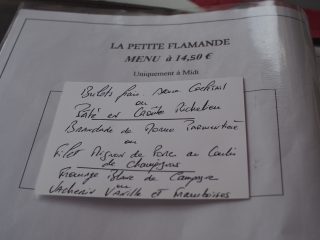 LA PETITE FLAMANDE
MENU à 14,50 €
Uniquement à Midi
Bulots frais Sauce Cocktail
ou
Pâté en Croûte Richelieu
Brandade de Morue Parmentière
ou
Filet Mignon de Porc au Coulis
de Champignons
Fromage Blanc de Campagne
ou
Vacherin Vanille et Framboises